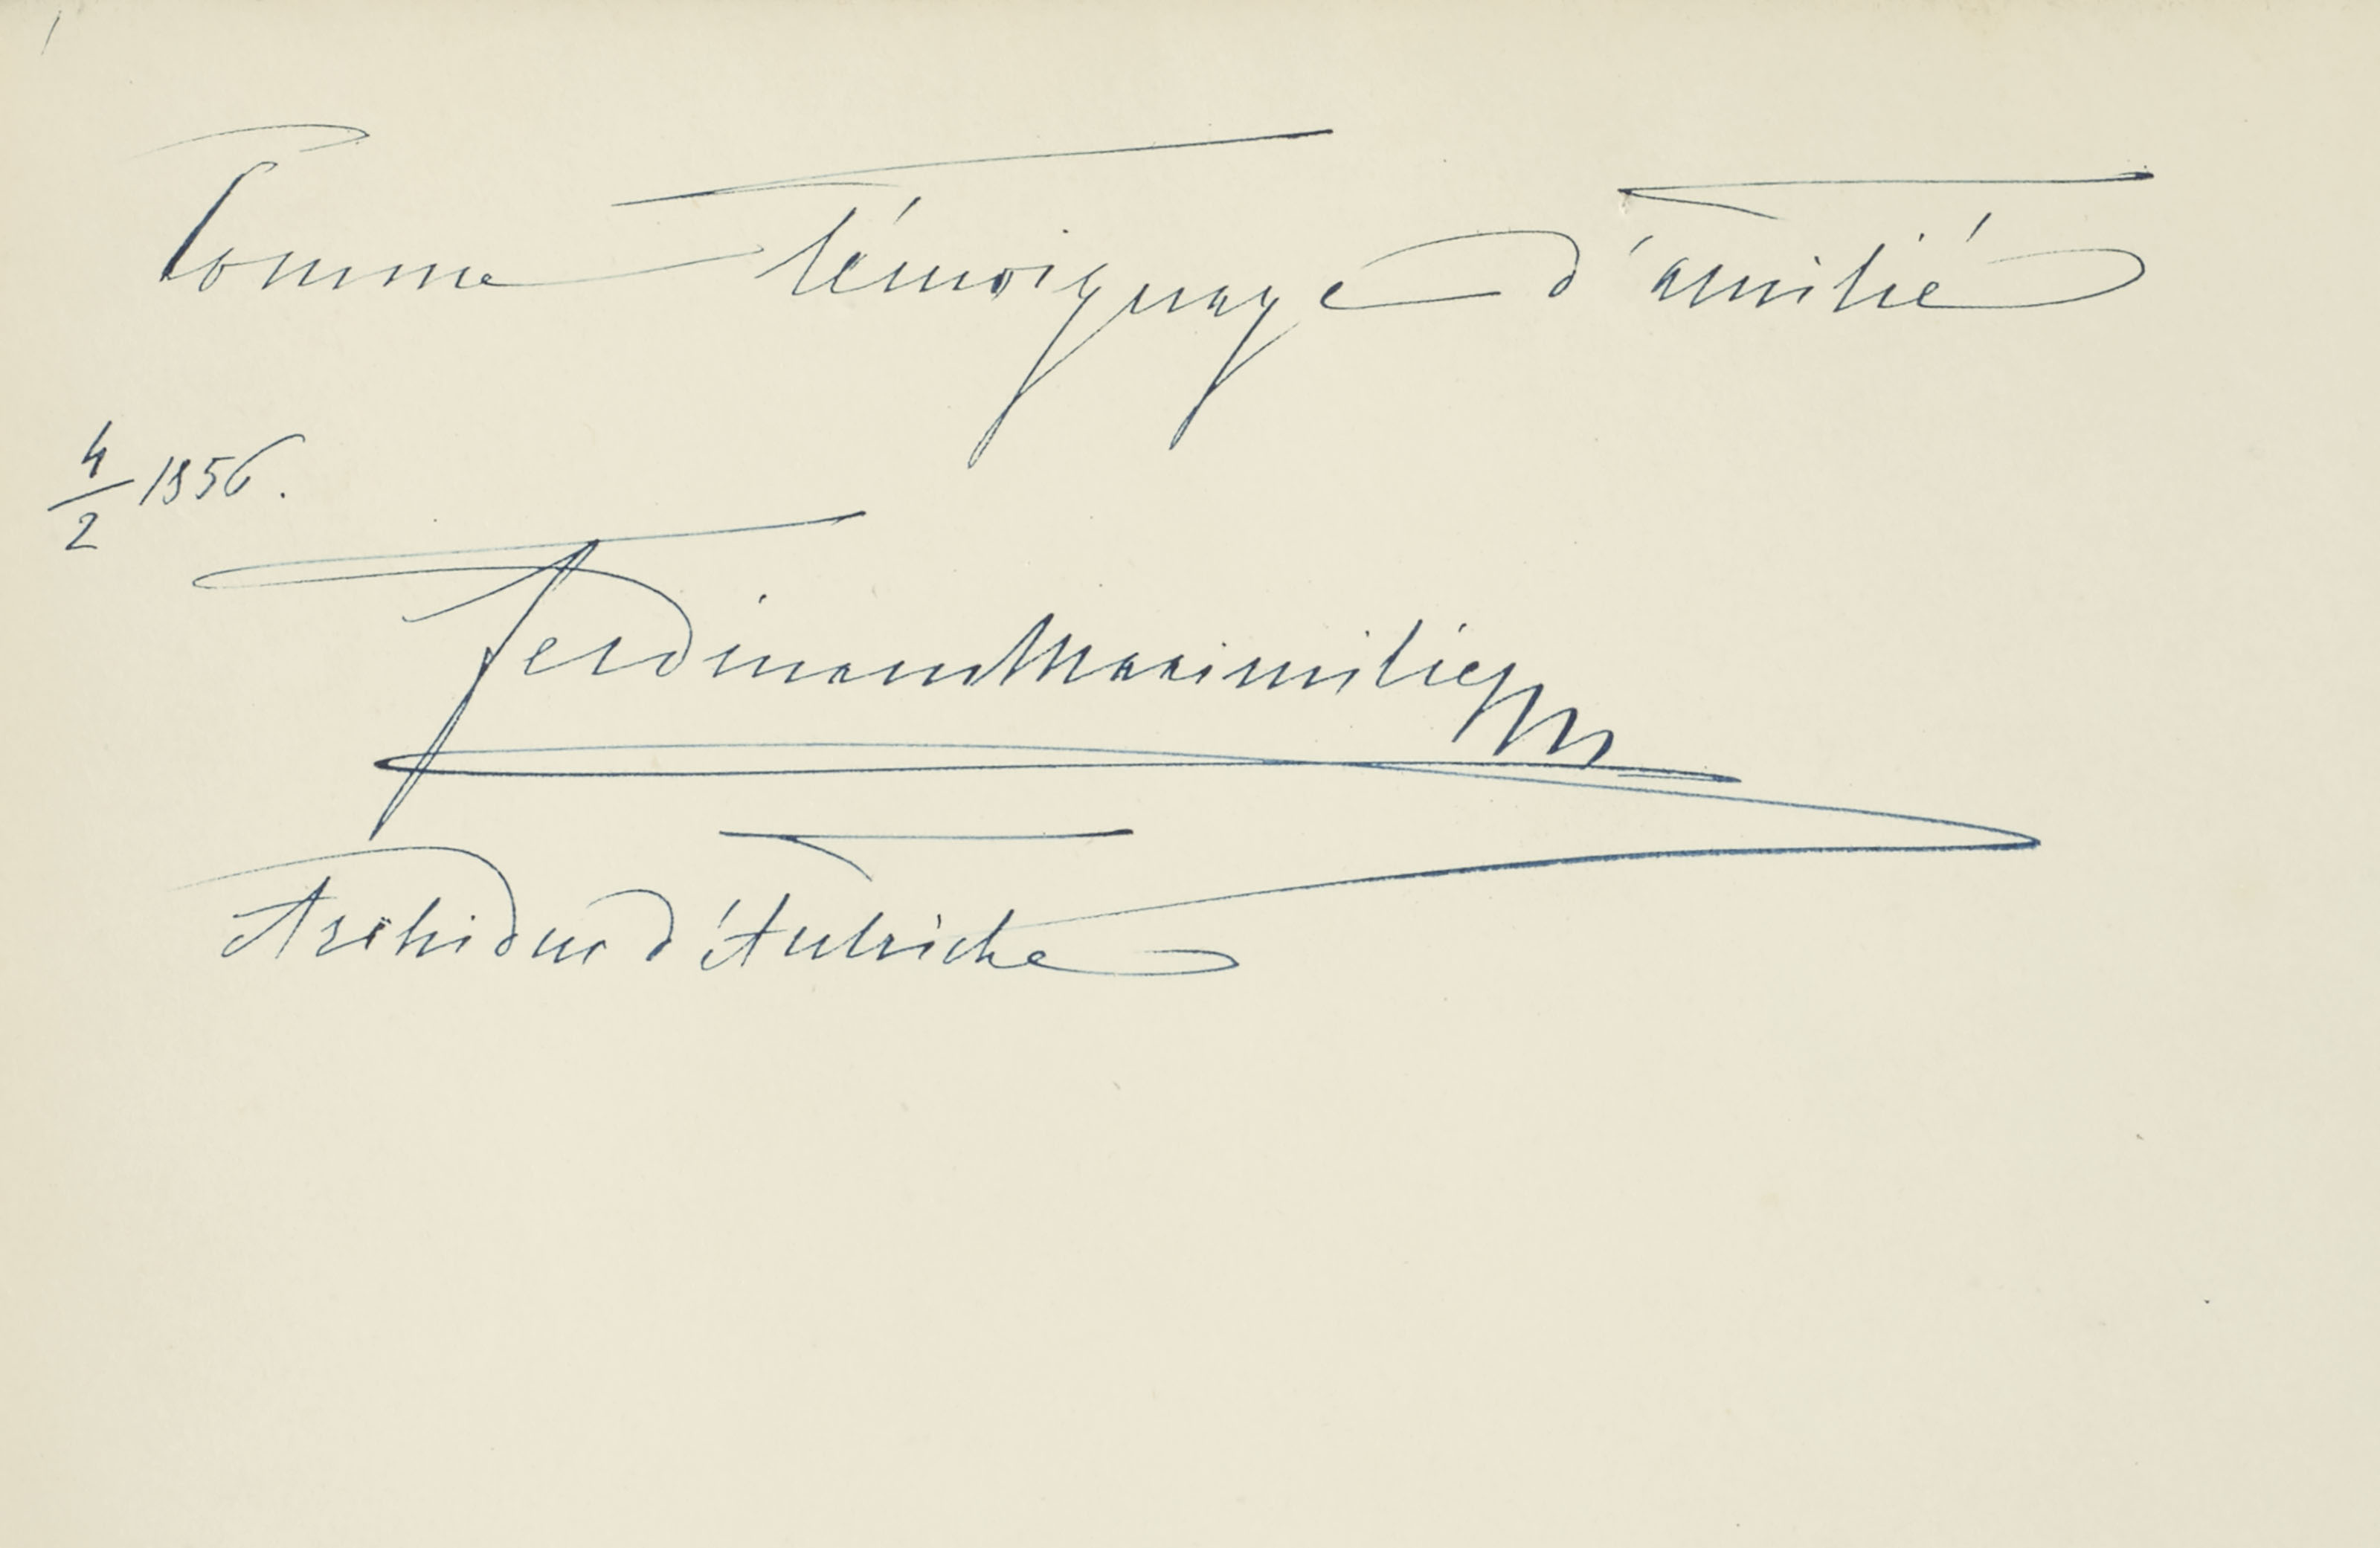 Comme témoignage d'amitié
4/2 1856.
Ferdinand Maximilien
Archiduc d'Autriche